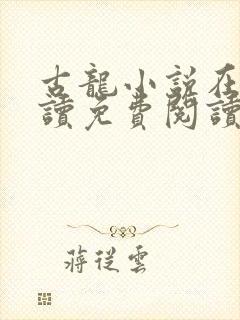 古龍小說在
讀免費閱讀
蔣從雲